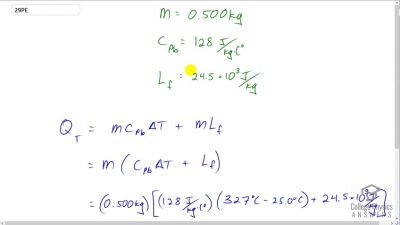 29PE
m = 0.500 kg
C_Pb = 128 J/kg·C°
L_f = 24.5 · 10³ J/kg
Q_T = m C_Pb ΔT + m L_f
= m ( C_Pb ΔT + L_f )
= (0.500 kg) [ (128 J/kg·C°) (327°C - 25.0°C) + 24.5 · 10³ J/kg ]
College Physics
ANSWERS